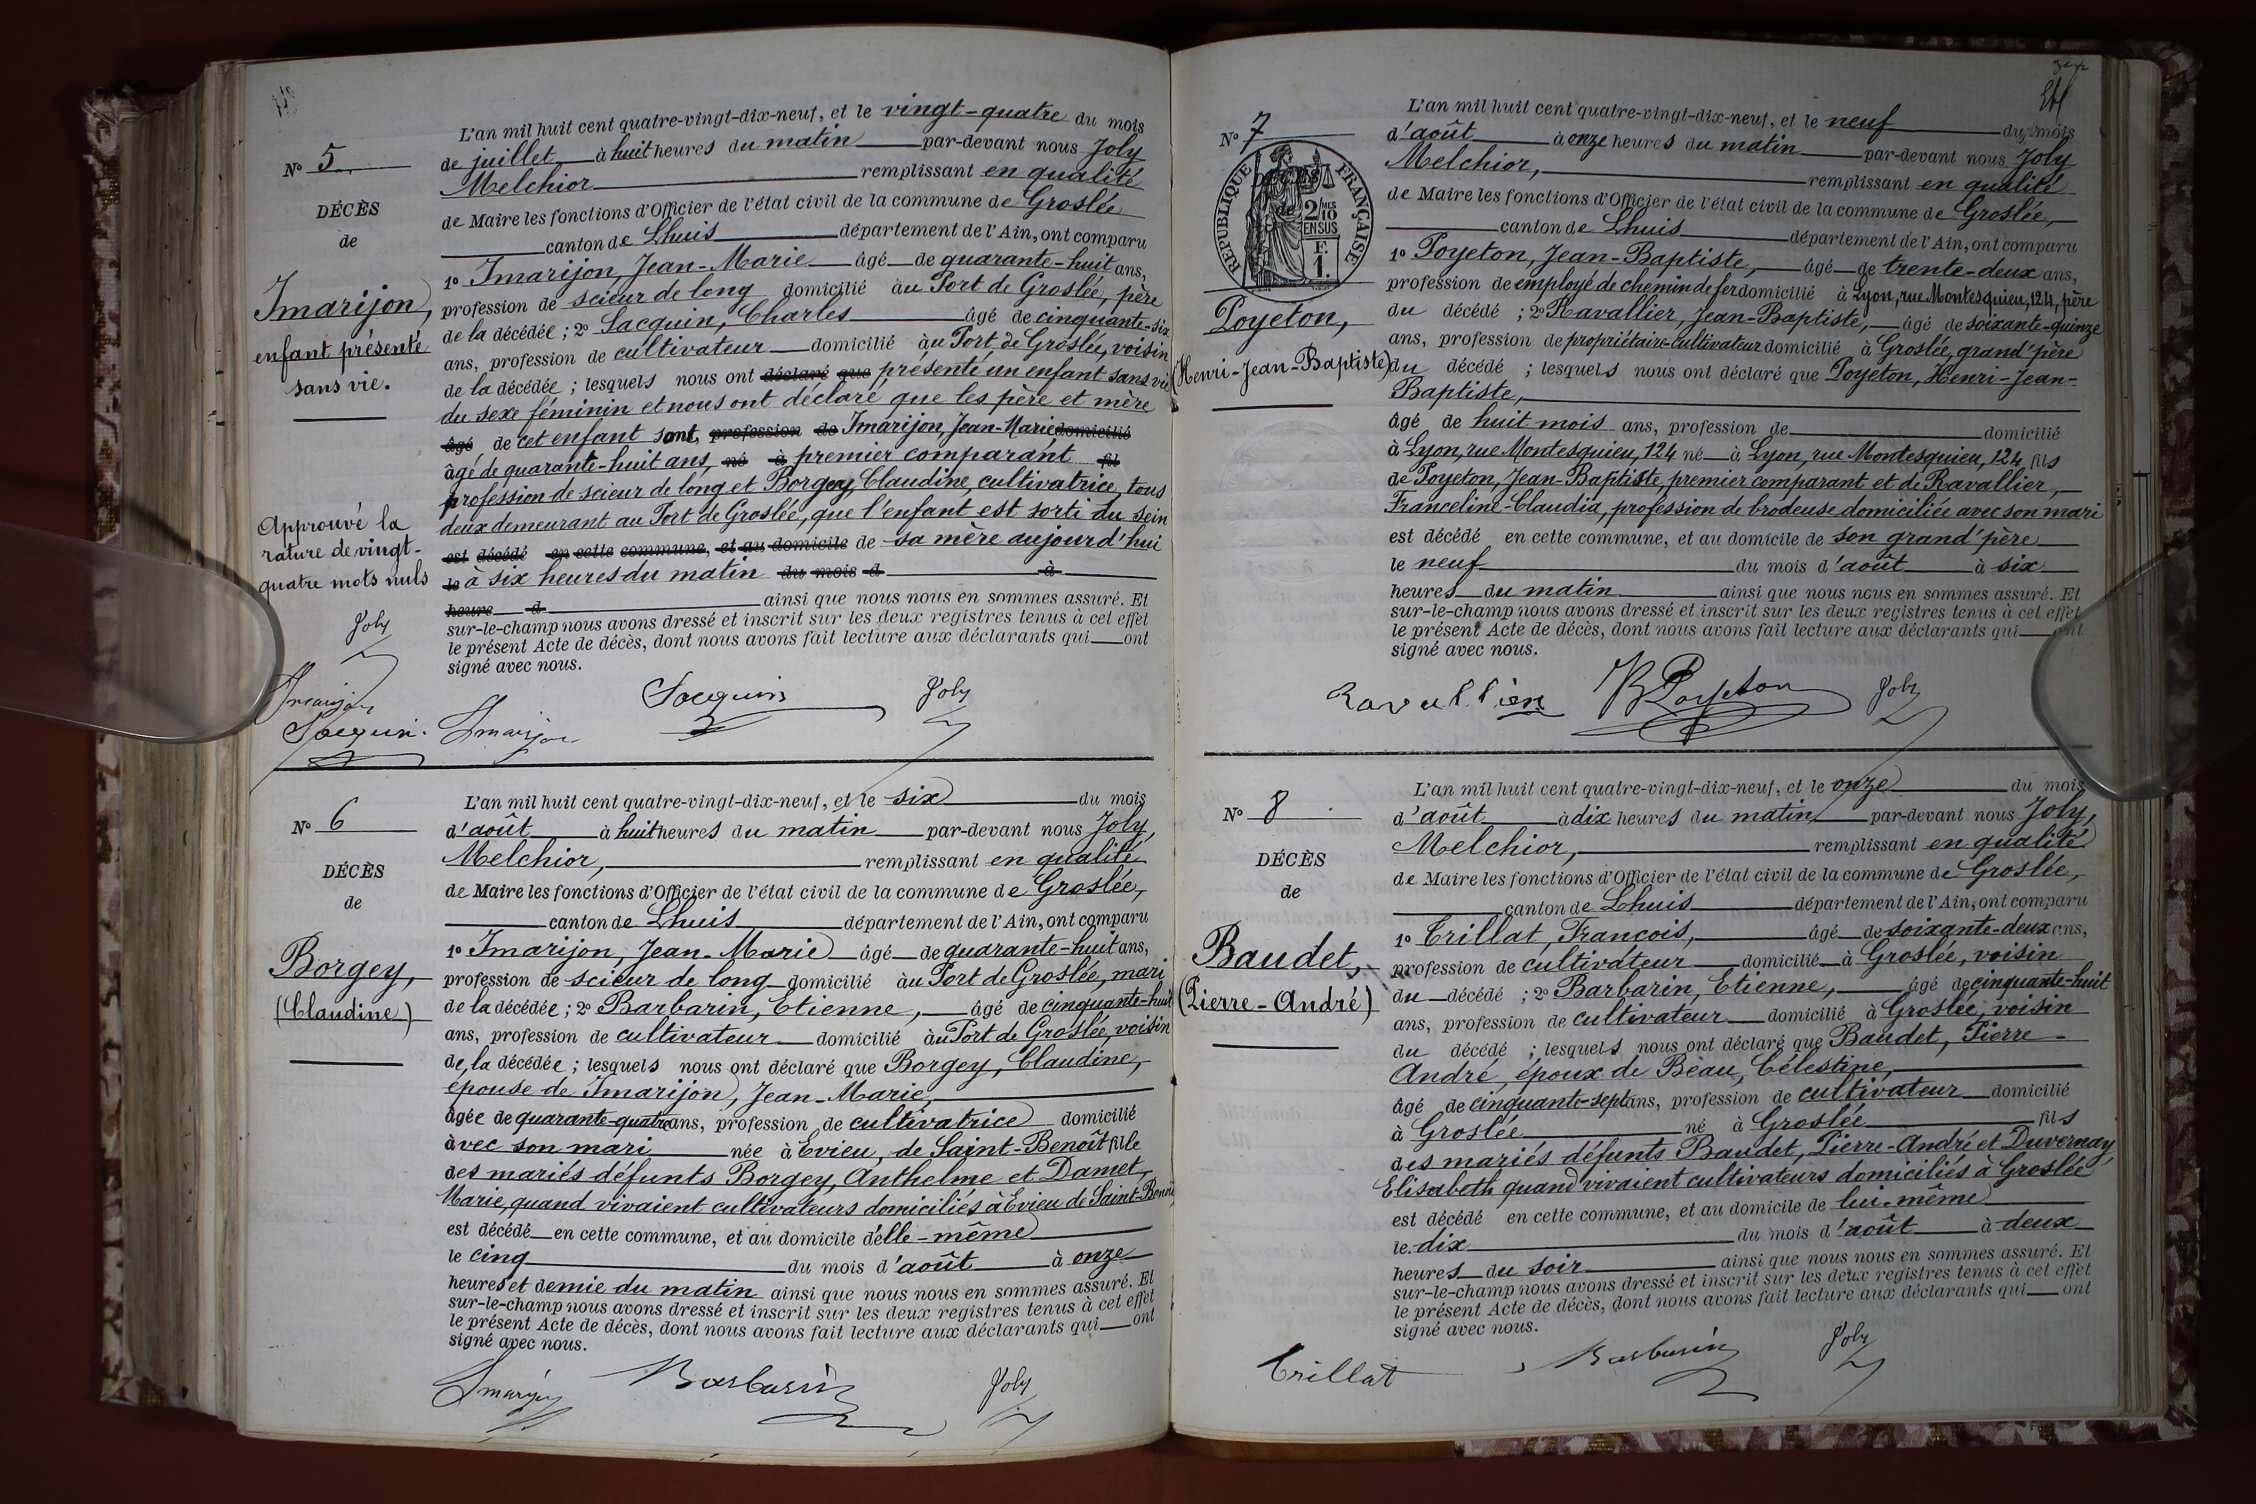 N° 5
DÉCÈS
de
Imarijon,
enfant présenté
sans vie.
Approuvé la
rature de vingt-
quatre mots nuls
Joly
Imarijon
Jacquin.
L'an mil huit cent quatre-vingt-dix-neuf, et le vingt-quatre du mois
de juillet à huit heures du matin par-devant nous Joly
Melchior remplissant en qualité
de Maire les fonctions d'Officier de l'état civil de la commune de Groslée
canton de Lhuis département de l'Ain, ont comparu
1° Imarijon, Jean-Marie âgé de quarante-huit ans,
profession de scieur de long domicilié au Port de Groslée, père
de la décédée ; 2° Jacquin, Charles âgé de cinquante-six
ans, profession de cultivateur domicilié au Port de Groslée, voisin
de la décédée ; lesquels nous ont déclaré que présenté un enfant sans vie
du sexe féminin et nous ont déclaré que les père et mère
âgé de cet enfant sont, profession de Imarijon, Jean-Marie domicilié
âgé de quarante-huit ans, né à premier comparant fil
profession de scieur de long et Borgey, Claudine, cultivatrice, tous
deux demeurant au Port de Groslée, que l'enfant est sorti du sein
est décédé en cette commune, et au domicile de sa mère aujourd'hui
le à six heures du matin du mois d à
heure d ainsi que nous nous en sommes assuré. Et
sur-le-champ nous avons dressé et inscrit sur les deux registres tenus à cet effet
le présent Acte de décès, dont nous avons fait lecture aux déclarants qui ont
signé avec nous.
Imarijon Jacquin Joly
N° 6
DÉCÈS
de
Borgey,
(Claudine)
L'an mil huit cent quatre-vingt-dix-neuf, et le six du mois
d'août à huit heures du matin par-devant nous Joly,
Melchior, remplissant en qualité
de Maire les fonctions d'Officier de l'état civil de la commune de Groslée,
canton de Lhuis département de l'Ain, ont comparu
1° Imarijon, Jean-Marie âgé de quarante-huit ans,
profession de scieur de long domicilié au Port de Groslée, mari
de la décédée ; 2° Barbarin, Etienne, âgé de cinquante-huit
ans, profession de cultivateur domicilié au Port de Groslée, voisin
de la décédée ; lesquels nous ont déclaré que Borgey, Claudine,
épouse de Imarijon, Jean-Marie,
âgée de quarante-quatre ans, profession de cultivatrice domicilié
avec son mari née à Evieu, de Saint-Benoît fille
des mariés défunts Borgey, Anthelme et Damet,
Marie, quand vivaient cultivateurs domiciliés à Evieu de Saint-Benoît
est décédé en cette commune, et au domicile d'elle-même
le cinq du mois d'août à onze
heures et demie du matin ainsi que nous nous en sommes assuré. Et
sur-le-champ nous avons dressé et inscrit sur les deux registres tenus à cet effet
le présent Acte de décès, dont nous avons fait lecture aux déclarants qui ont
signé avec nous.
Imarijon Barbarin Joly
N° 7
RÉPUBLIQUE FRANÇAISE
DÉCÈS
de
2/10 MES
EN SUS
F.
1.
Poyeton,
(Henri-Jean-Baptiste)
L'an mil huit cent quatre-vingt-dix-neuf, et le neuf du mois
d'août à onze heures du matin par-devant nous Joly
Melchior, remplissant en qualité
de Maire les fonctions d'Officier de l'état civil de la commune de Groslée,
canton de Lhuis département de l'Ain, ont comparu
1° Poyeton, Jean-Baptiste, âgé de trente-deux ans,
profession de employé de chemin de fer domicilié à Lyon, rue Montesquieu, 124, père
du décédé ; 2° Ravallier, Jean-Baptiste, âgé de soixante-quinze
ans, profession de propriétaire-cultivateur domicilié à Groslée, grand'père
du décédé ; lesquels nous ont déclaré que Poyeton, Henri-Jean-
Baptiste,
âgé de huit mois ans, profession de domicilié
à Lyon, rue Montesquieu, 124 né à Lyon, rue Montesquieu, 124 fils
de Poyeton, Jean-Baptiste, premier comparant et de Ravallier,
Franceline-Claudia, profession de brodeuse domiciliée avec son mari
est décédé en cette commune, et au domicile de son grand'père
le neuf du mois d'août à six
heures du matin ainsi que nous nous en sommes assuré. Et
sur-le-champ nous avons dressé et inscrit sur les deux registres tenus à cet effet
le présent Acte de décès, dont nous avons fait lecture aux déclarants qui ont
signé avec nous.
Ravallier JB Poyeton Joly
N° 8
DÉCÈS
de
Baudet,
(Pierre-André)
L'an mil huit cent quatre-vingt-dix-neuf, et le onze du mois
d'août à dix heures du matin par-devant nous Joly,
Melchior, remplissant en qualité
de Maire les fonctions d'Officier de l'état civil de la commune de Groslée,
canton de Lhuis département de l'Ain, ont comparu
1° Trillat, François, âgé de soixante-deux ans,
profession de cultivateur domicilié à Groslée, voisin
du décédé ; 2° Barbarin, Etienne, âgé de cinquante-huit
ans, profession de cultivateur domicilié à Groslée, voisin
du décédé ; lesquels nous ont déclaré que Baudet, Pierre-
André, époux de Béau, Célestine,
âgé de cinquante-sept ans, profession de cultivateur domicilié
à Groslée né à Groslée fils
des mariés défunts Baudet, Pierre-André et Duvernay,
Elisabeth quand vivaient cultivateurs domiciliés à Groslée
est décédé en cette commune, et au domicile de lui-même
le dix du mois d'août à deux
heures du soir ainsi que nous nous en sommes assuré. Et
sur-le-champ nous avons dressé et inscrit sur les deux registres tenus à cet effet
le présent Acte de décès, dont nous avons fait lecture aux déclarants qui ont
signé avec nous.
Trillat Barbarin Joly